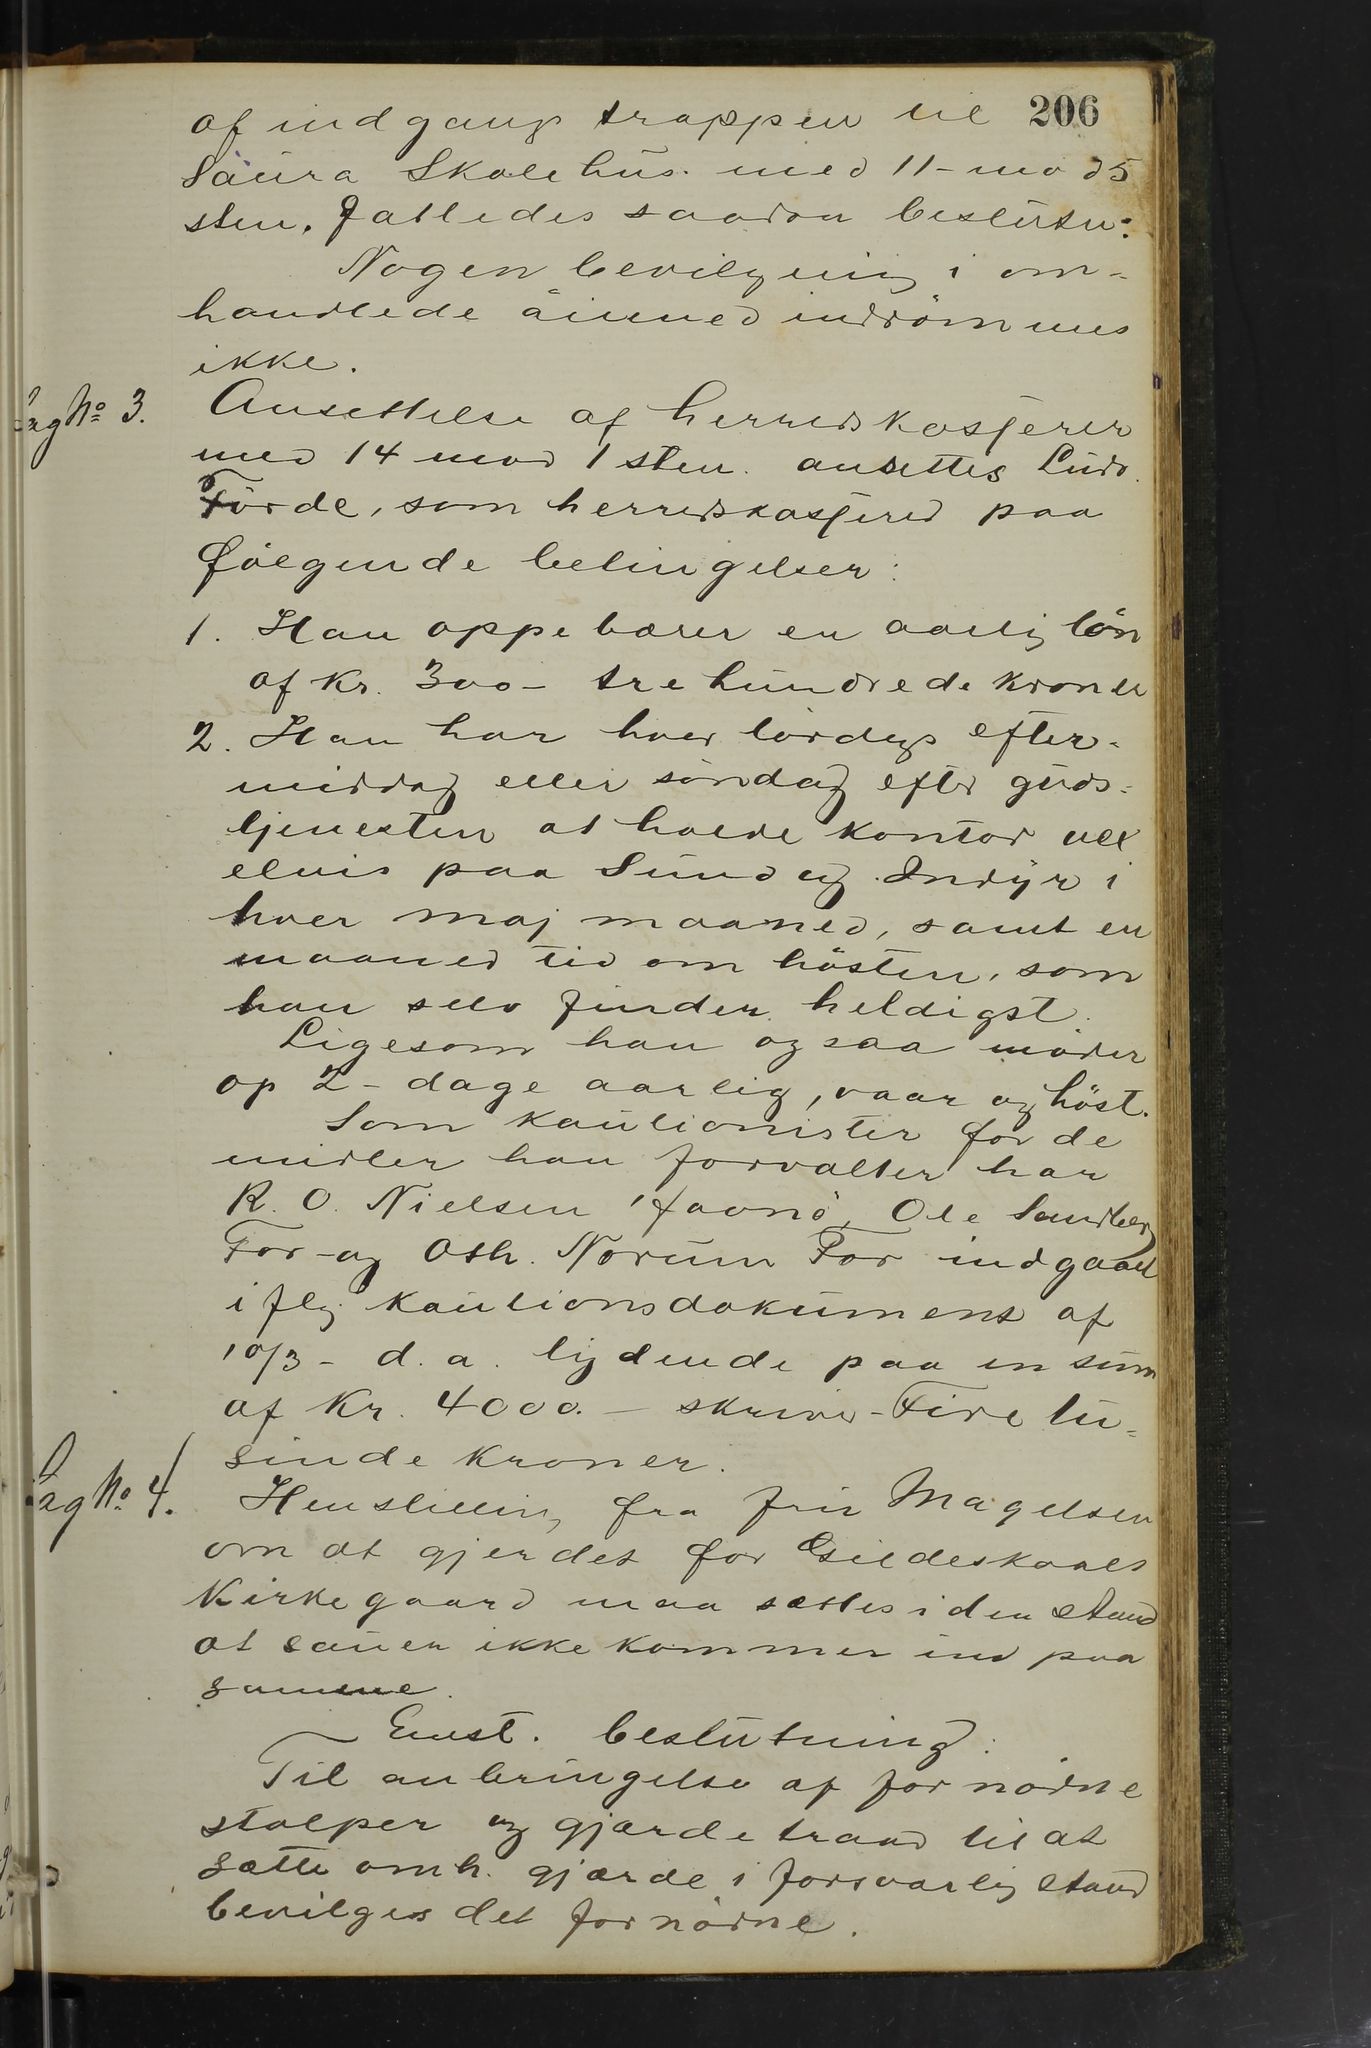 206
af indgangstrappen til
Saura Skolehus. med 11 - mod 5
stem. Fatledes saadan beslutn:
Nogen bevilgning i om-
handlede øiemed indrømmes
ikke.
Sag No 3. Ansettelse af herredskasjerer
med 14 mod 1 stem. ansettes Ludv.
Förde, som herredskasjerer paa
følgende betingelser:
1. Han oppebærer en aarlig løn
af Kr. 300 - tre hundrede kroner
2. Han har hver lørdags efter-
middag eller søndag efter guds-
tjenesten at holde kontor vex
elvis paa Sund og Indyr i
hver maj maaned, samt en
maaned tid om høsten, som
han selv finder heldigst.
Ligesom han ogsaa møder
op 2 - dage aarlig, vaar og høst.
Som kautionister for de
midler han forvalter har
R. O. Nielsen, Ole Sandberg
For - og Oth. Norum For indgaaet
iflg kautionsdokument af
10/3 - d. a. lydende paa en sum
af Kr. 4000. - skriver - Fire tu-
sinde kroner.
Sag No. 4. Henstilling fra fru Magelsen
om at gjerdet for Gildeskaals
Kirkegaard maa sættes i den stand
at sauer ikke kommer ind paa
samme.
Enst. beslutning:
Til anbringelse af fornødne
stolper og gjærdetraad til at
sætte omh. gjærde i forsvarlig stand
bevilges det fornødne.